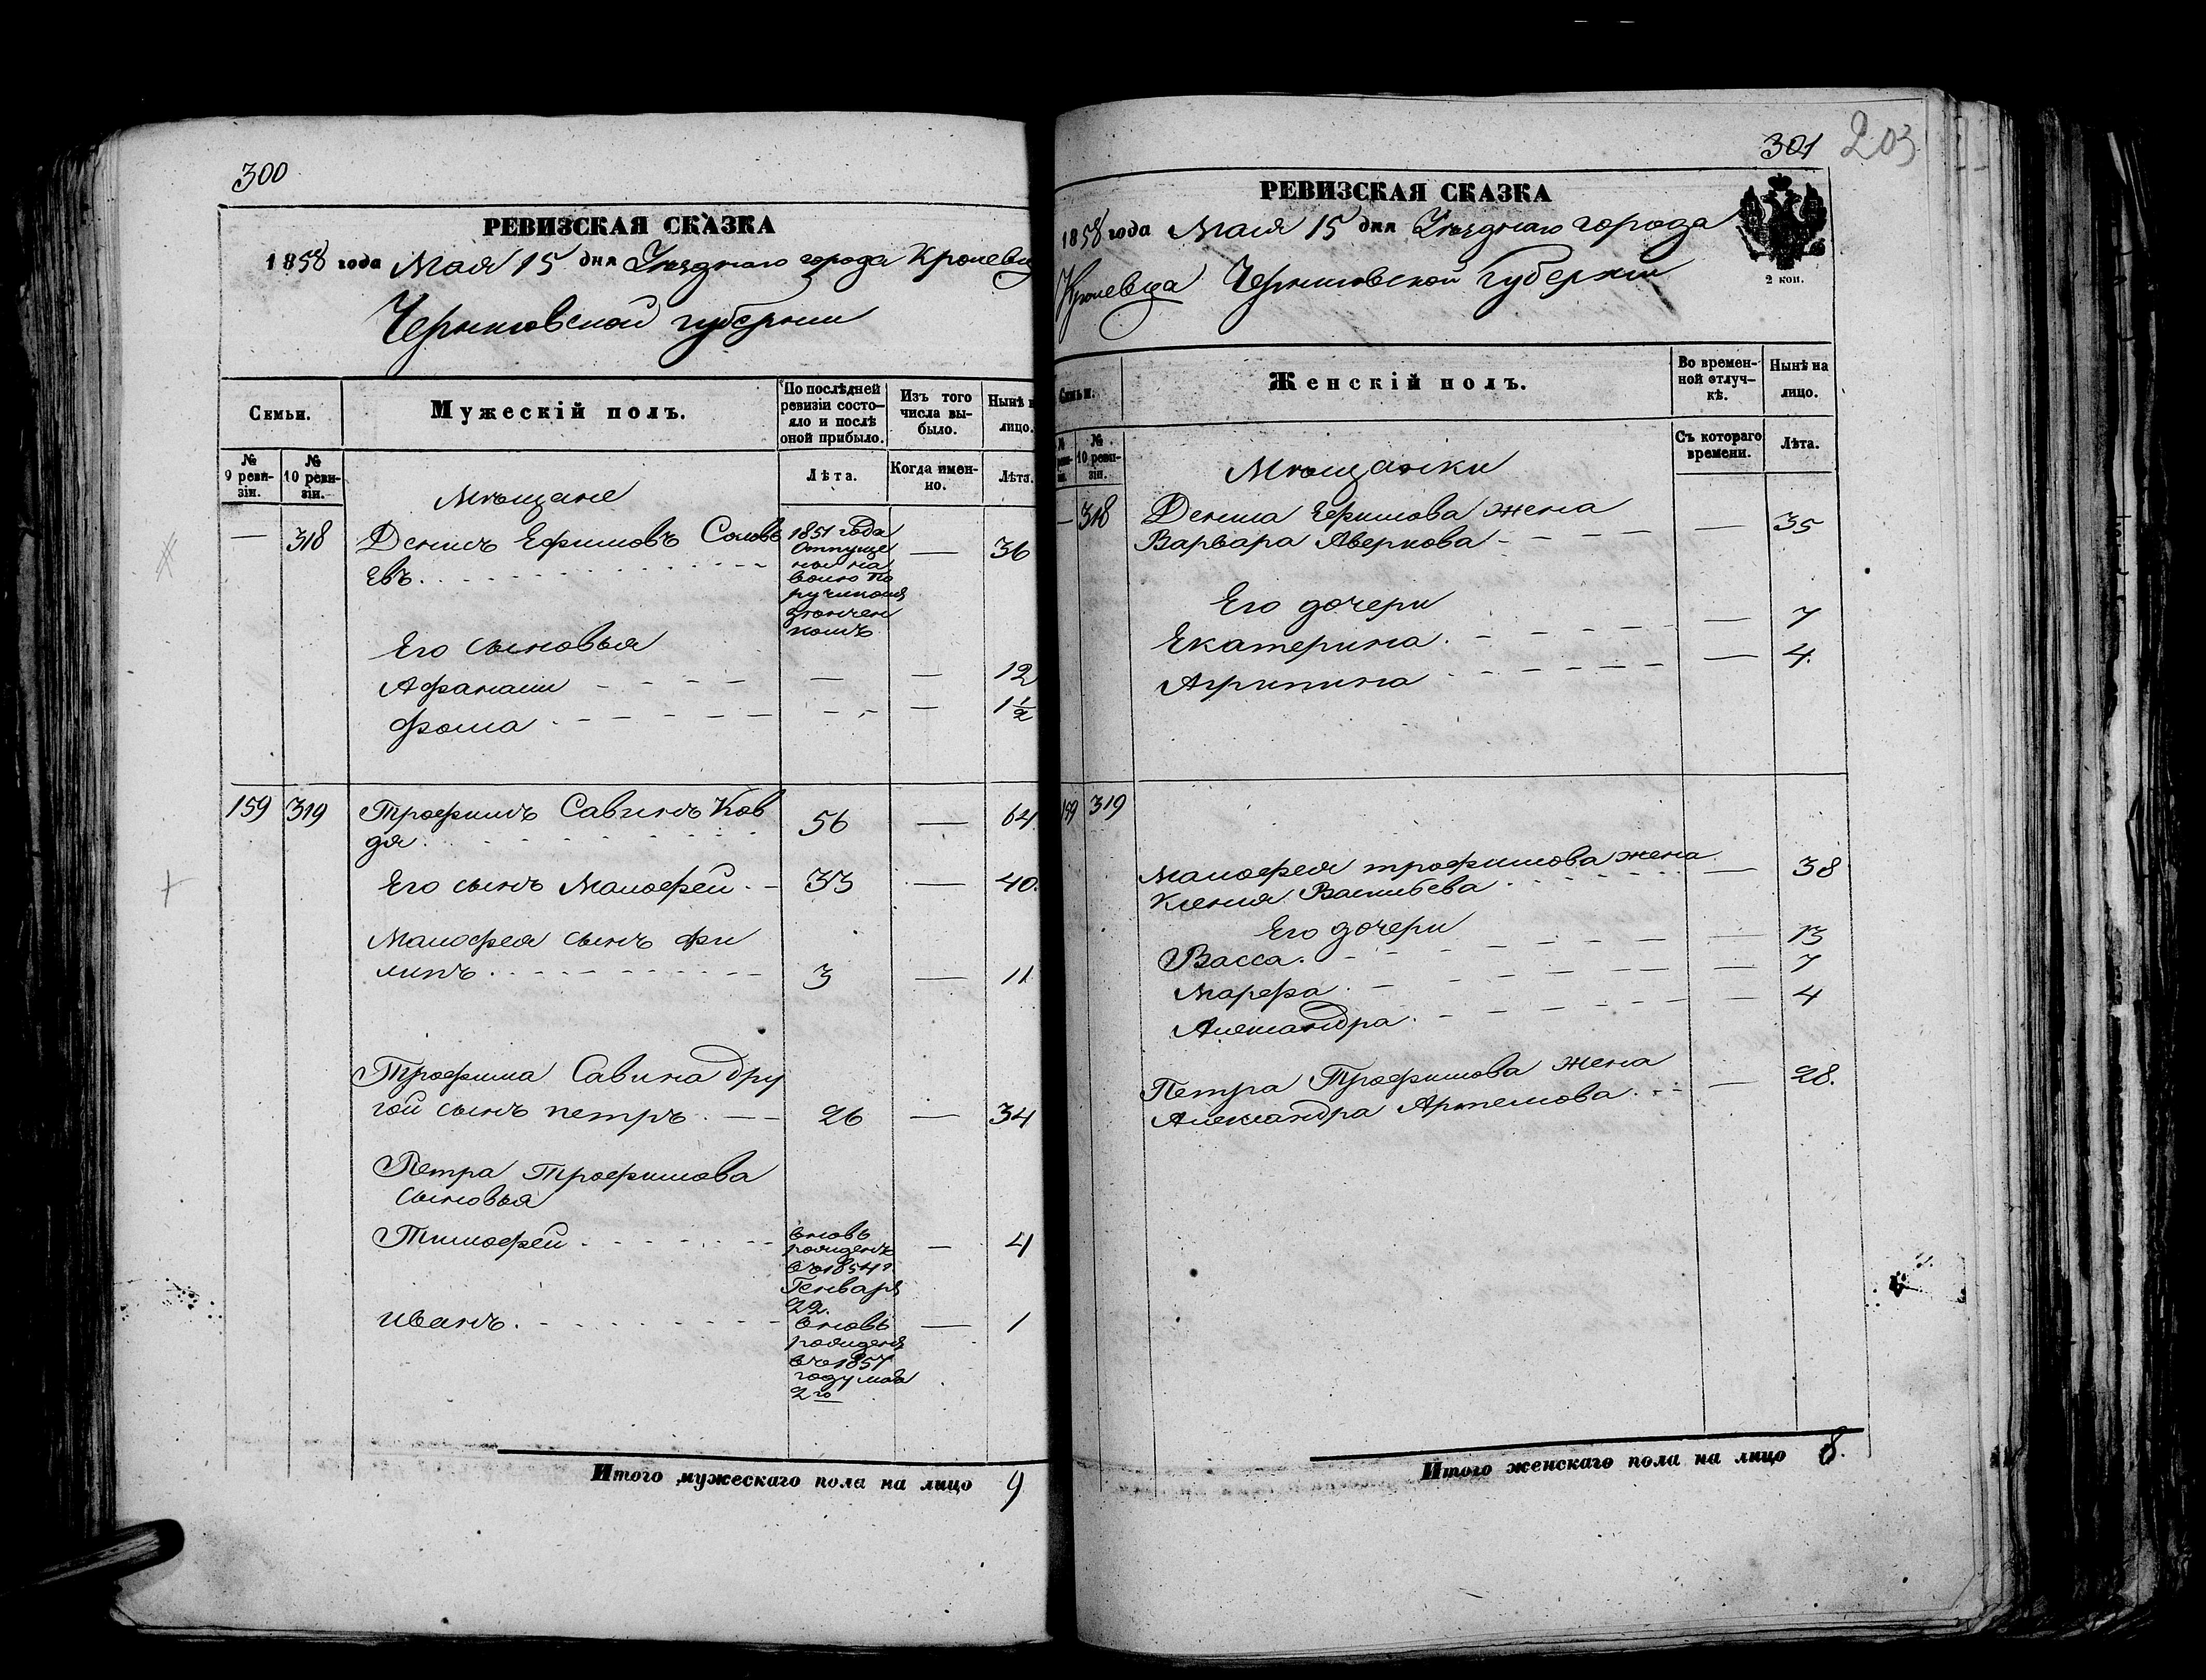 300
РЕВИЗСКАЯ СКАЗКА
1858 года Мая 15 дня Уѣзднаго города Кролевц
Черниговской губернии
Семьи.
Мужескій полъ.
По послѣдней ревизіи состо-
яло и послѣ оной прибыло.
Изъ того числа вы-
было.
Нынѣ н
лицо.
№ 9 реви-
зіи.
№ 10 реви-
зіи.
Лѣта.
Когда имен-
но.
Лѣта.
Мѣщане
— 318 Денисъ Ефимовъ Соловь 1851 года — 36
евъ. отпуще
ной на
волю По
ручикомъ

комъ
Его сыновья
Афанасий — — 12
Фома — — 1 1/2
159 319 Трофимъ Савинъ Ков 56 — 64
дя
Его сынъ Маиофей 33 — 40.
Маиофея сынъ Фи
липъ 3 — 11
Трофима Савина дру
гой сынъ петръ 26 — 34
Петра Трофимова
сыновья
Тимофей вновь — 4
рожденъ
въ 1854 г
Генваря
22.
иванъ вновь — 1
рожденъ
въ 1857
году мая
2го
Итого мужескаго пола на лицо 9
301 203
РЕВИЗСКАЯ СКАЗКА
1858 года Мая 15 дня Уѣзднаго города
Кролевца Черниговской губернии
2 коп.
Семьи.
Женскій полъ.
Во времен-
ной отлуч-
кѣ.
Нынѣ на
лицо.
№ 10 реви-
зіи.
Съ котораго
времени.
Лѣта.
Мѣщанки
— 318 Дениса Ефимова жена
Варвара Аверкова — 35
Его дочери
Екатерина — 7
Агрипина — 4.
159 319
Маиофея трофимова жена
Ксения Васильева — 38
Его дочери
Васса — 13
Марфа — 7
Александра — 4
Петра Трофимова жена
Александра Артемова — 28.
Итого женскаго пола на лицо 8.